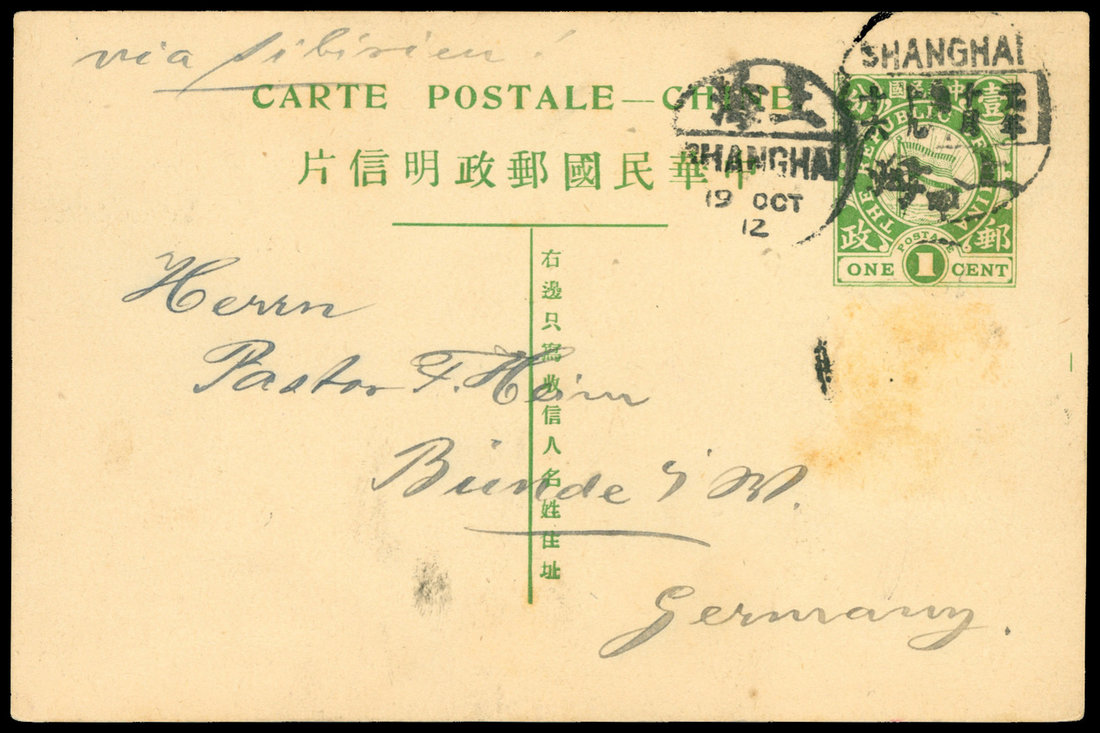 via Sibirien!
CARTE POSTALE—CHINE
中華民國郵政明信片
上海
SHANGHAI
19 OCT
12
SHANGHAI
中華民國
壹 分
THE REPUBLIC OF CHINA
POSTAGE
郵 政
ONE 1 CENT
右邊只寫收信人名姓住址
Herrn
Pastor F. Heim
Bünde i/W.
Germany.